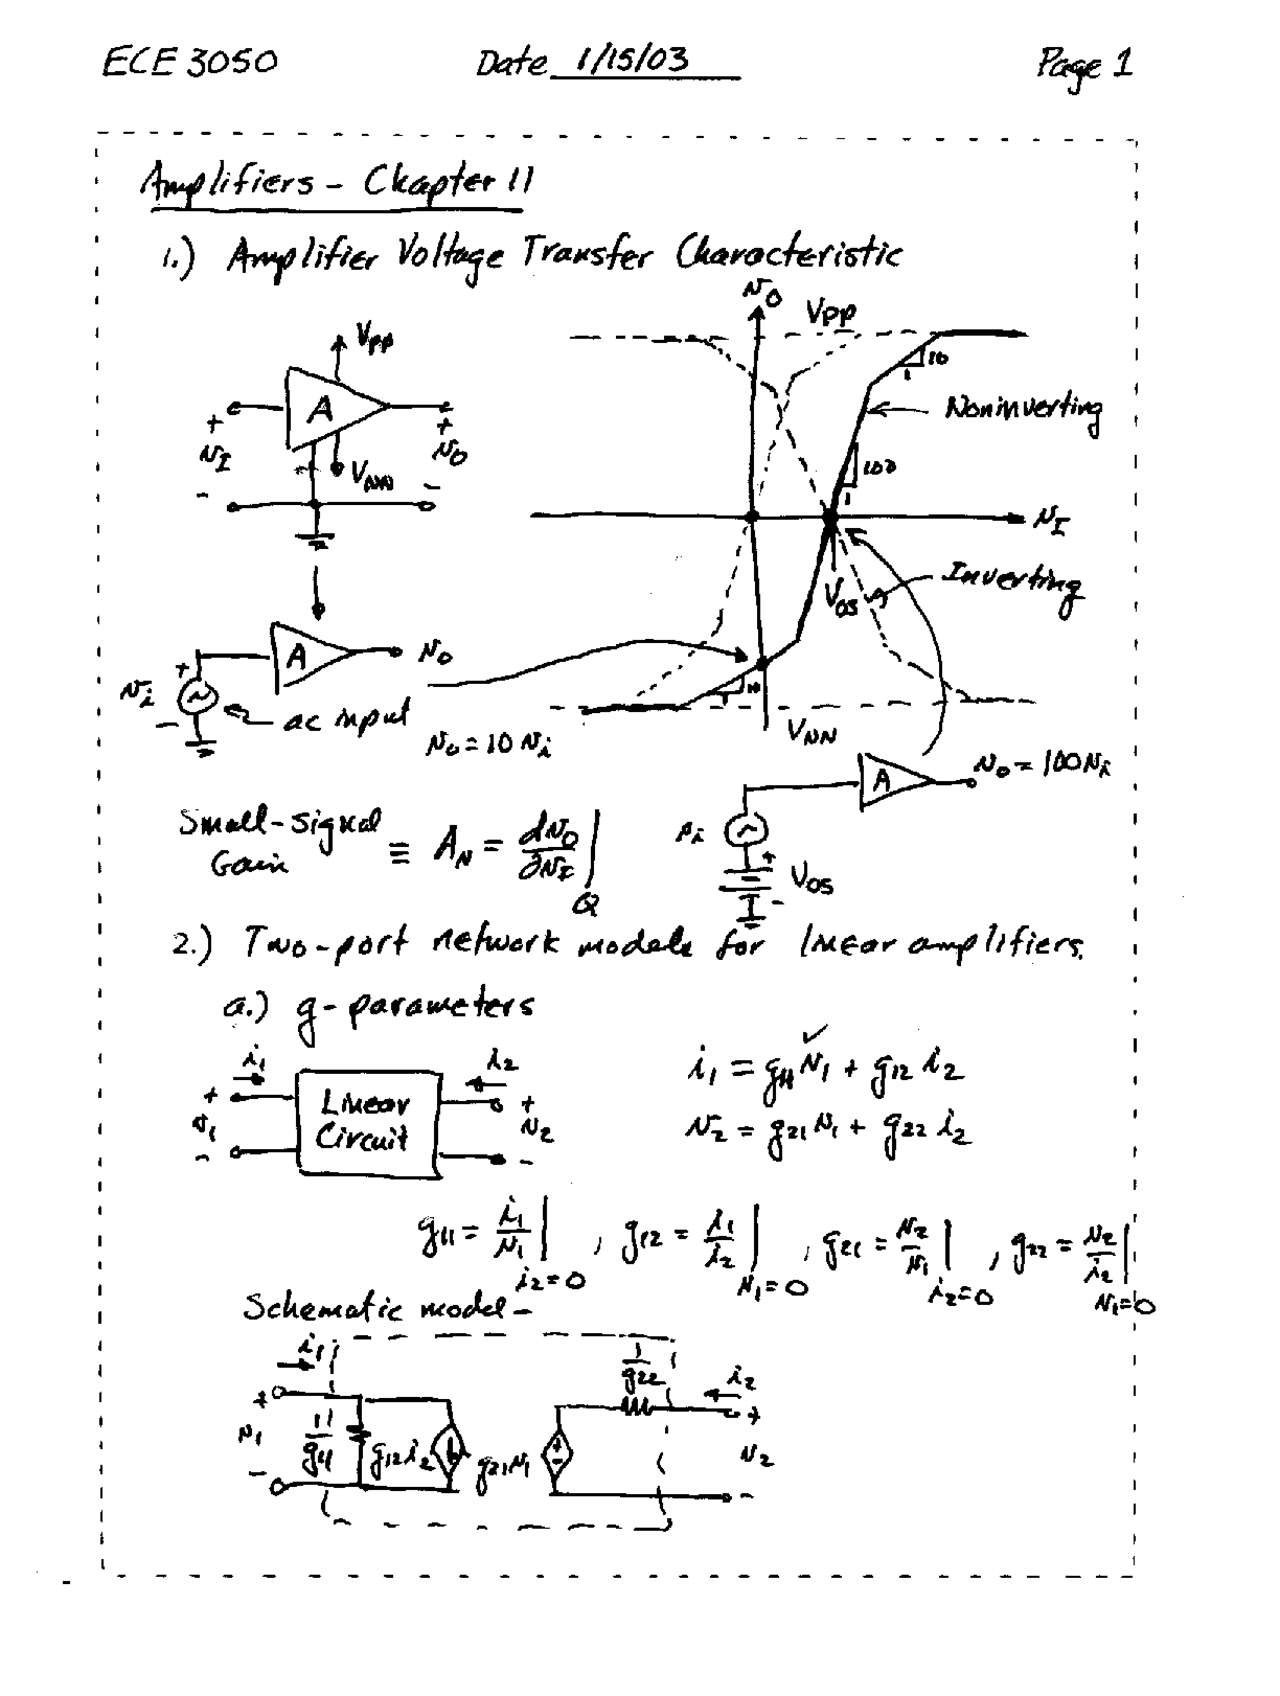 ECE 3050 Date 1/15/03 Page 1
Amplifiers - Chapter 11
1.) Amplifier Voltage Transfer Characteristic
v_O
V_PP
V_PP
10
1
A
Noninverting
+ v_I -
+ v_O -
V_NN
100
1
v_I
Inverting
V_OS
A
v_O
+ v_i -
ac input
10
1
v_o = 10 v_i
V_NN
A
v_o = 100 v_i
Small-signal Gain ≡ A_v = ∂v_O/∂v_I |_Q
v_i
+
V_OS
-
2.) Two-port network models for linear amplifiers.
a.) g-parameters
i_1
i_2
+ v_1 -
Linear
Circuit
+ v_2 -
i_1 = g_11 v_1 + g_12 i_2
v_2 = g_21 v_1 + g_22 i_2
g_11 = i_1/v_1 |_i_2=0 , g_12 = i_1/i_2 |_v_1=0 , g_21 = v_2/v_1 |_i_2=0 , g_22 = v_2/i_2 |_v_1=0
Schematic model -
i_1
1/g_22
i_2
+ v_1 -
1/g_11
g_12 i_2
g_21 v_1
+
-
+ v_2 -